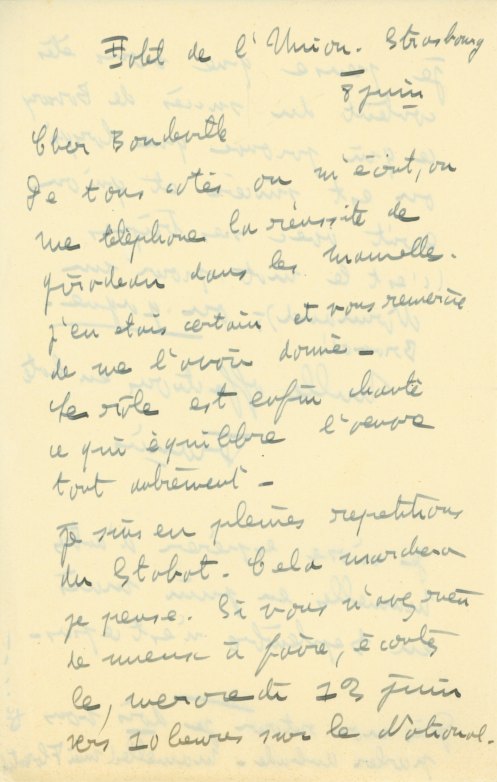 Hotel de l'Union. Strasbourg
8 juin
Cher Bondeville
De tous cotés on m'écrit, on
me téléphone la réussite de
girodeau dans les mamelles.
j'en etais certain et vous remercie
de me l'avoir donné -
Le rôle est enfin chanté
ce qui équilibre l'oeuvre
tout autrement -
Je suis en pleines repetitions
du Stabat. Cela marchera
je pense. Si vous n'avez rien
de mieux à faire, écoutez
le, mercredi 13 juin
vers 20 heures sur le National.